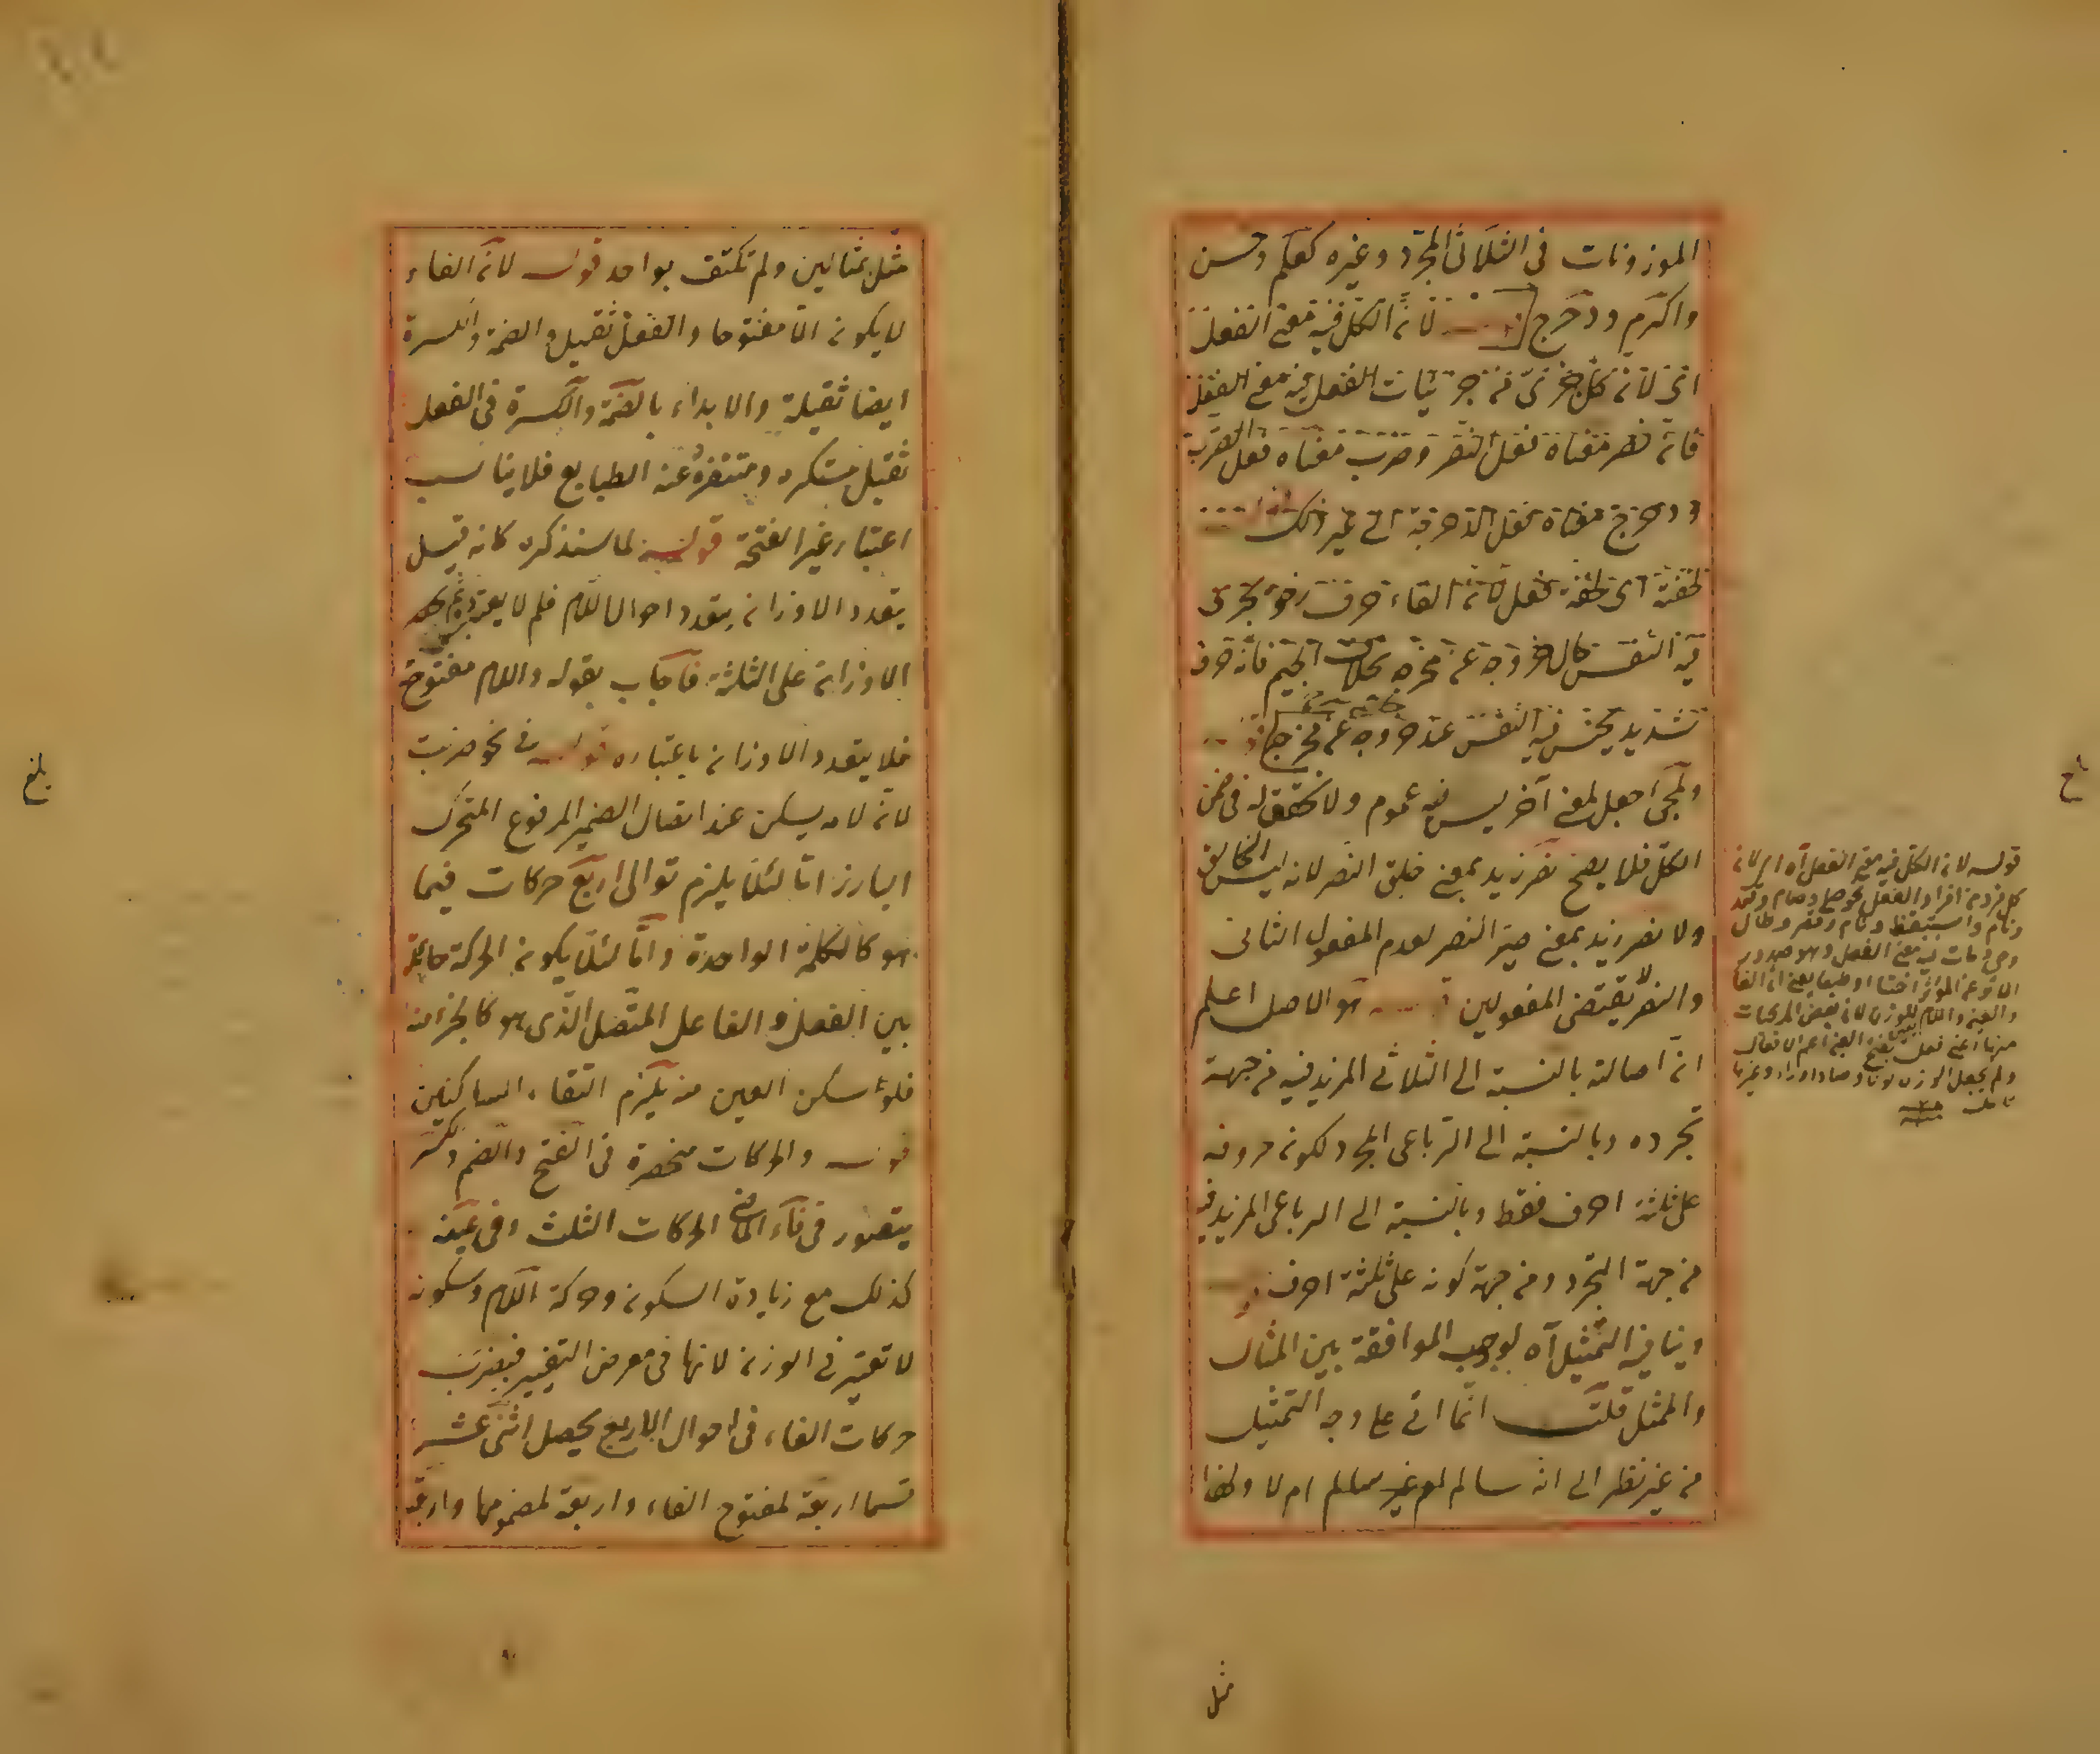 الموزونات فى الثلاثى المجرد وغيره كعلم وحسن
واكرم ودحرج لان الكل فيه معنى الفعل
اى لان كل جزئى من جزئيات الفعل فيه معنى الفعل
فان نصر معناه فعل النصر وضرب معناه فعل الضرب
ودحرج معناه فعل الدحرجة الى غير ذلك
لخفته اى لخفة فعل لان الفاء حرف رخو يجرى
فيه النفس حال خروجه عن مخرجه بخلاف الجيم فانه حرف
شديد يحتبس فيه النفس عند خروجه عن مخرجه
ولمجئ جعل لمعنى آخر ليس فيه عموم ولا تحقق له فى ضمن
الكل فلا يصح نصر زيد بمعنى خلق النصر لانه ليس الخالق
ولا نصر زيد بمعنى صير النصر لعدم المفعول الثانى
والنصر لا يقتضى المفعولين هو الاصل اعلم
ان اصالته بالنسبة الى الثلاثى المزيد فيه من جهة
تجرده وبالنسبة الى الرباعى المجرد لكونه حروفه
على ثلثة احرف فقط وبالنسبة الى الرباعى المزيد فيه
من جهة التجرد ومن جهة كونه على ثلثة احرف
وينافيه التمثيل آه لوجوب الموافقة بين المثال
والممثل قلت انما اتى على وجه التمثيل
من غير نظر الى انه سالم ام غير سالم ام لا ولهذا
قوله لان الكل فيه معنى الفعل آه اى لان
كل فرد من افراد الفعل نحو صلح وصام وقعد
ونام واستيقظ وقام وقصر وطال
وحى ومات فيه معنى الفعل وهو صدور
والعين واللام للوزن لان بعض المركبات
منها اعنى فعل بفتح العين اعم الافعال
مثل
مثل بمثالين ولم تكتف بواحد قوله لان الفاء
لا يكون الا مفتوحا والفعل ثقيل والضمة والكسرة
ايضا ثقيلة والابداء بالضمة والكسرة فى الفعل
ثقيل مستكره ومتنفرة عنه الطبايع فلا يناسب
اعتبار غير الفتحة قوله لما سنذكره كانه قيل
يتعدد الاوزان بتعدد احوال اللام فلم لا يعتبر
الاوزان على الثلثة فاجاب بقوله واللام مفتوح
فلا يتعدد الاوزان باعتباره قوله فى نحو ضربت
لانه لامه يسكن عند اتصال الضمير المرفوع المتحرك
البارز اما لئلا يلزم توالى اربع حركات فيما
هو كالكلمة الواحدة واما لئلا يكون الحركة حائلة
بين الفعل والفاعل المتصل الذى هو كالجزء منه
فلو سكن العين منه يلزم التقاء الساكنين
قوله والحركات منحصرة فى الفتح والضم والكسر
يتصور فى فاء الماضى الحركات الثلث وفى عينه
كذلك مع زيادة السكون وحركة اللام وسكونه
لا تعتبر فى الوزن لانها فى معرض التغيير فبضرب
حركات الفاء فى احوال الاربع يحصل اثنى عشر
قسما اربعة لمفتوح الفاء واربعة لمضمومها واربعة
بلغ